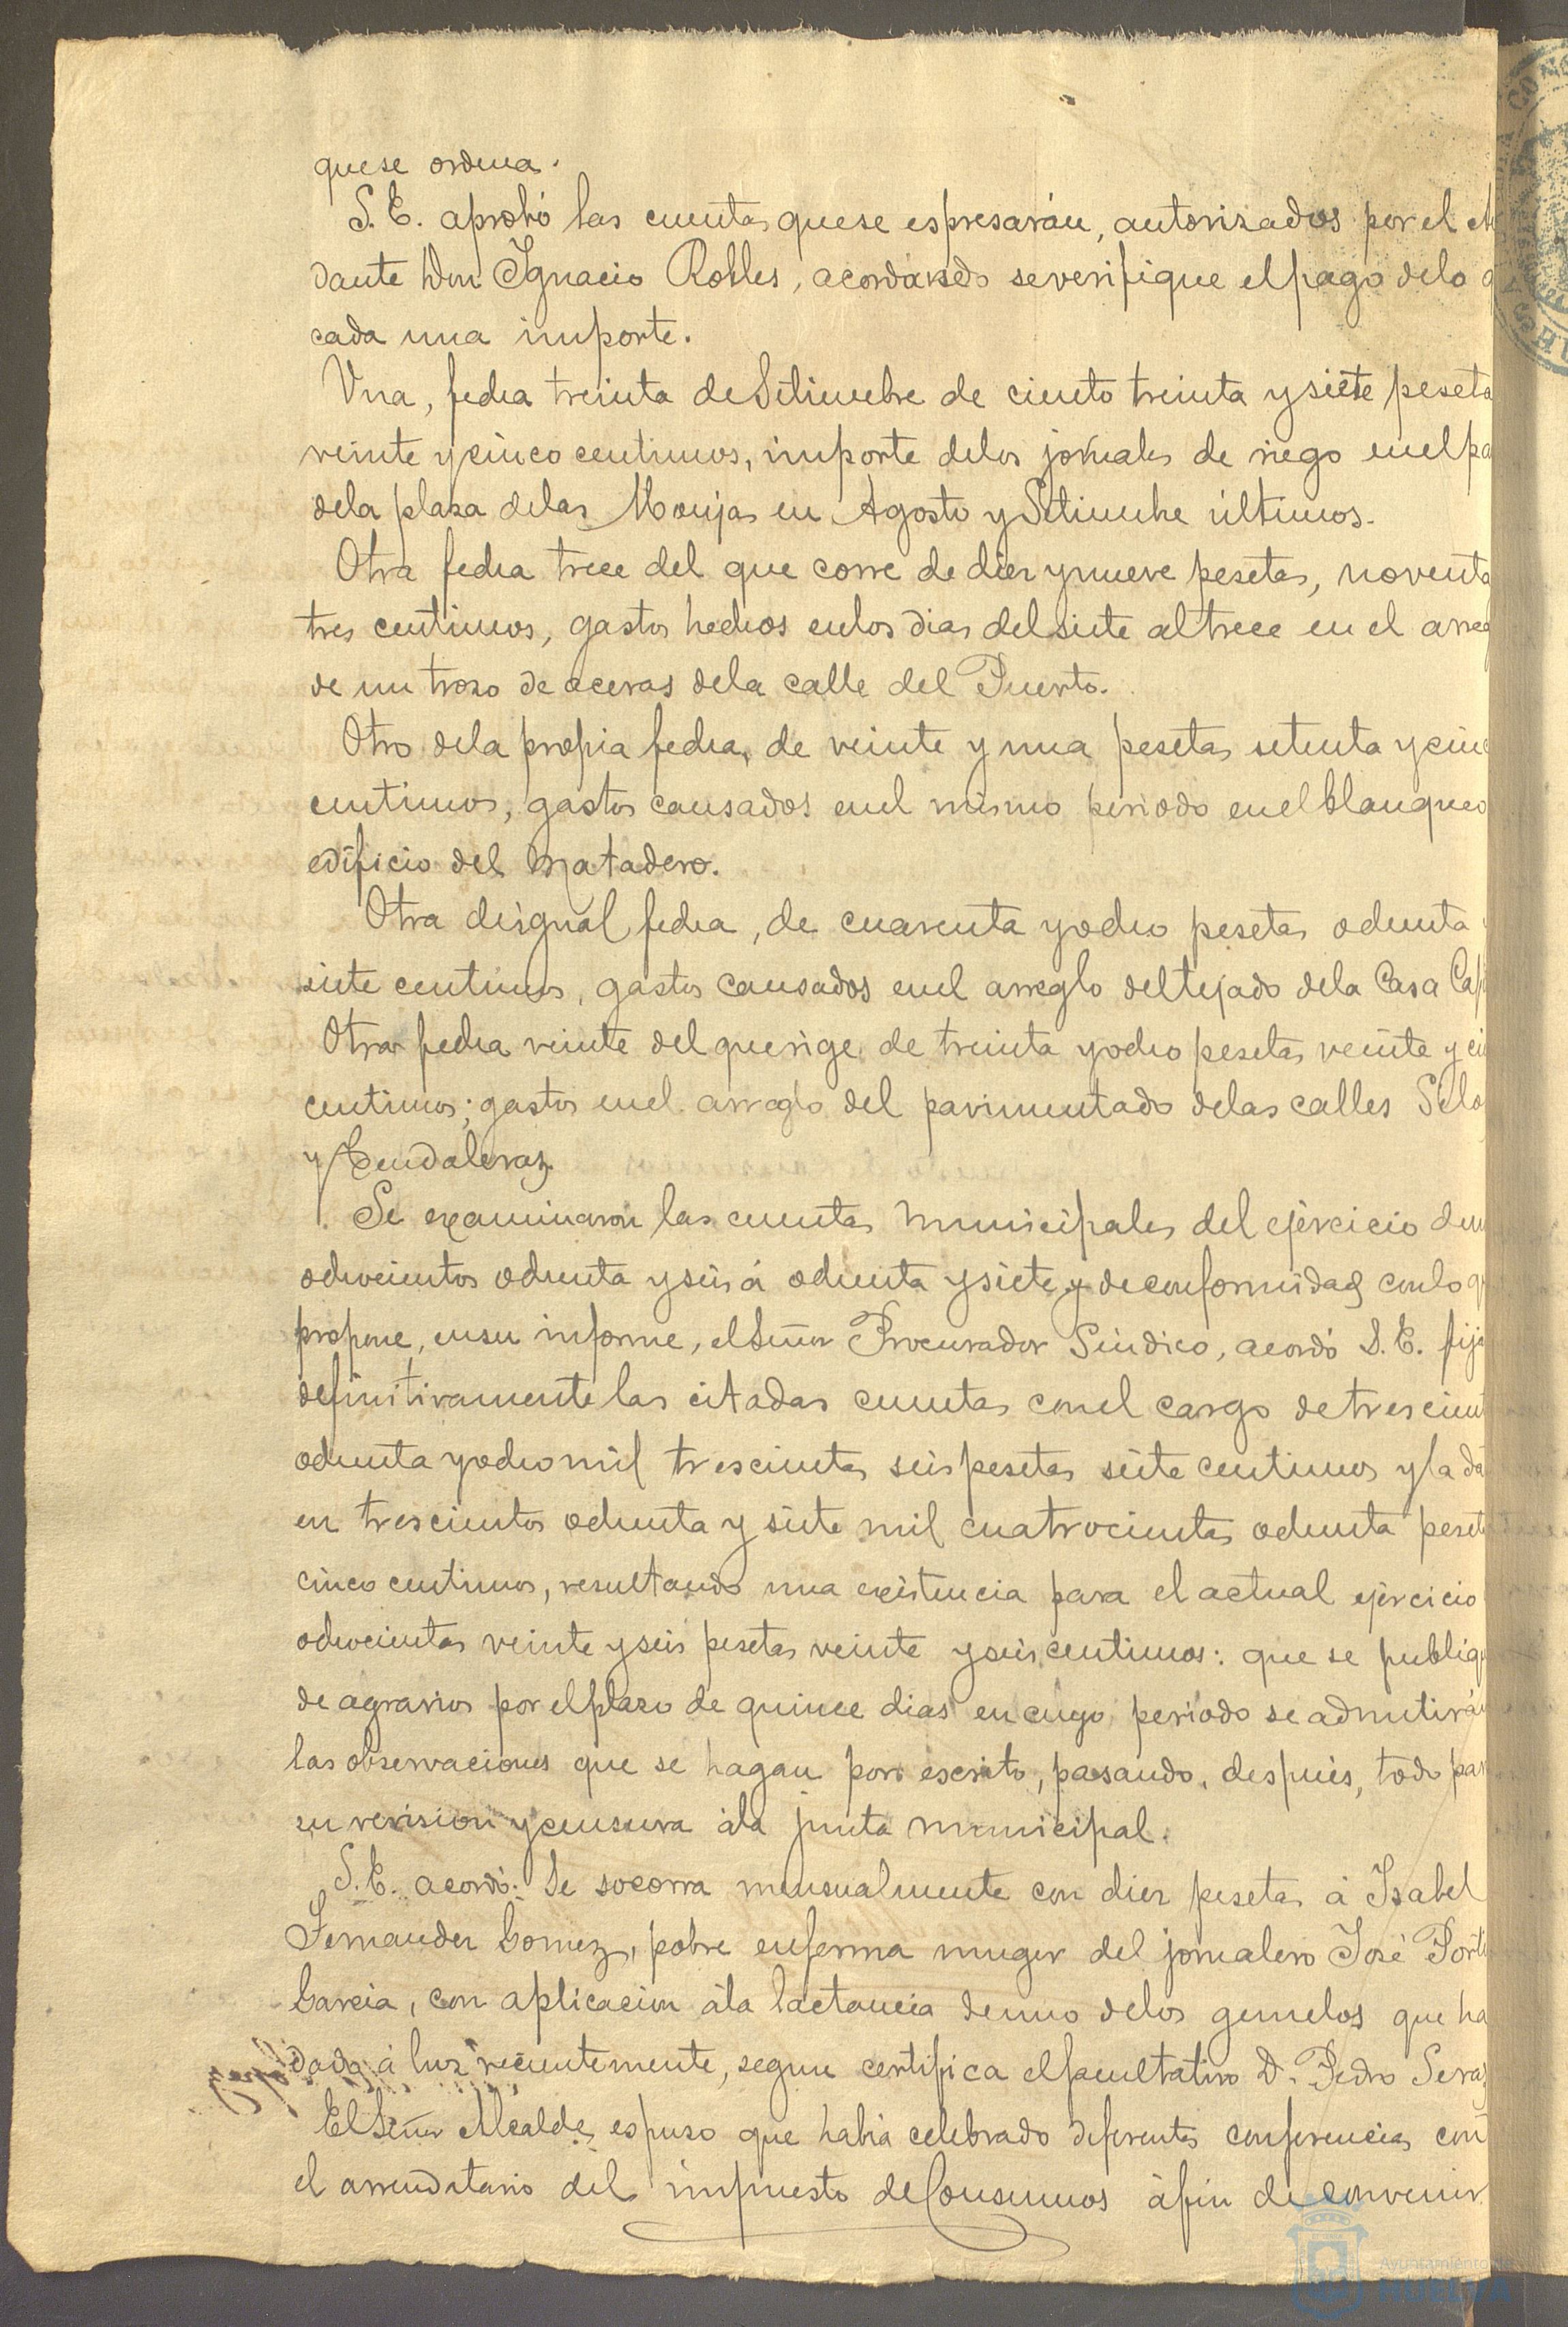 que se ordena.
S. E. aprobó las cuentas que se espresarán, autorizados por el
dante Don Ignacio Robles, acordándo se verifique el pago de lo
cada una importe.
Una, fecha treinta de Setiembre de ciento treinta y siete peseta
veinte y cinco centimos, importe de los jornales de riego en el pa
de la plaza de las Monjas en Agosto y Setiembre últimos.
Otra fecha trece del que corre de diez y nueve pesetas, noventa
tres centimos, gastos hechos en los dias del siete al trece en el arre
de un trozo de aceras de la calle del Puerto.
Otro de la propia fecha, de veinte y una pesetas setenta y cin
centimos, gastos causados en el mismo periodo en el blanqueo
edificio del Matadero.
Otra de igual fecha, de cuarenta y ocho pesetas ochenta
siete centimos, gastos causados en el arreglo del tejado de la Casa Cap
Otra fecha veinte del que rige de treinta y ocho pesetas veinte y ci
centimos; gastos en el arreglo del pavimentado de las calles
y Tendaleras.
Se examinaron las cuentas municipales del ejércicio de
ochocientos ochenta y seis á ochenta y siete y de conformidad con lo q
propone, en su informe, el Señor Procurador Sindico, acordó S. E. fija
definitivamente las citadas cuentas con el cargo de trescient
ochenta y ocho mil trescientas seis pesetas siete centimos y la da
en trescientos ochenta y siete mil cuatrocientas ochenta peset
cinco centimos, resultando una existencia para el actual ejércicio
ochocientas veinte y seis pesetas veinte y seis centimos: que se publiq
de agravios por el plazo de quince dias en cuyo periodo se admitirán
las observaciones que se hagan por escrito, pasando, después, todo par
su revision y censura á la junta municipal.
S. E. acordó: Se socorra mensualmente con diez pesetas á Isabel
Fernandez Gomez, pobre enferma muger del jornalero José Port
Garcia, con aplicacion á la lactancia de uno de los gemelos que ha
dado á luz recientemente, segun certifica el facultativo D. Pedro Seras
El Señor Alcalde espuso que habia celebrado diferentes conferencias con
el arrendatario del impuesto de Consumos á fin de convenir
Ayuntamiento de
HUELVA